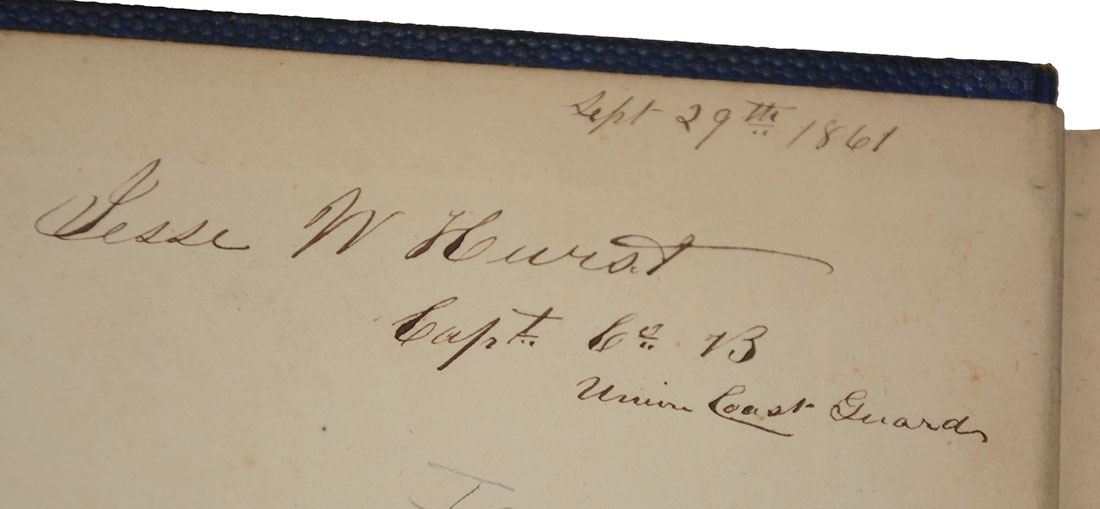 Sept 29th 1861
Jesse W Hurst
Capt. Co. B
Union Coast Guards